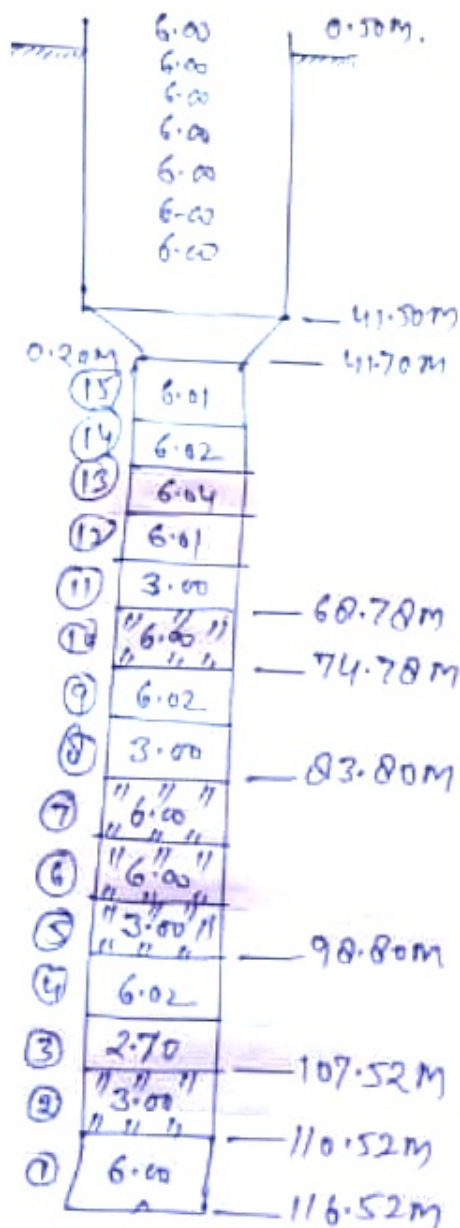 6.00 0.50m.
6.00
6.00
6.00
6.00
6.00
6.00
41.50m
0.20m 41.70m
15 6.01
14 6.02
13 6.04
12 6.01
11 3.00
68.78m
10 6.00
74.78m
9 6.02
8 3.00
83.80m
7 6.00
6 6.00
5 3.00
98.80m
4 6.02
3 2.70
107.52m
2 3.00
110.52m
1 6.00
116.52m